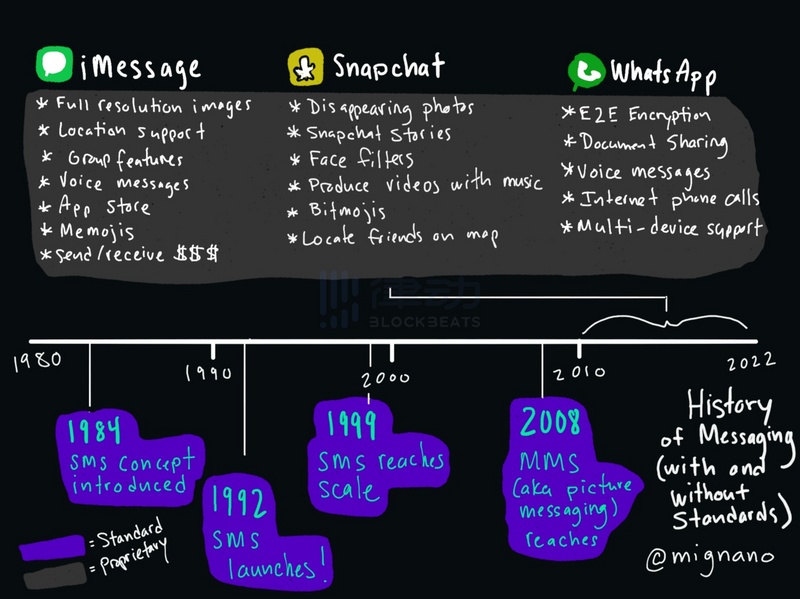 iMessage
* Full resolution images
* Location support
* Group features
* Voice messages
* App Store
* Memojis
* Send/receive $$$
Snapchat
* Disappearing photos
* Snapchat Stories
* Face filters
* Produce videos with music
* Bitmojis
* Locate friends on map
WhatsApp
* E2E Encryption
* Document Sharing
* Voice messages
* Internet phone calls
* Multi-device support
律动
BLOCKBEATS
1980
1990
2000
2010
2022
1984
SMS concept
introduced
1992
SMS
launches!
1999
SMS reaches
scale
2008
MMS
(aka picture
messaging)
reaches
History
of Messaging
(with and
without
Standards)
@mignano
= Standard
= Proprietary